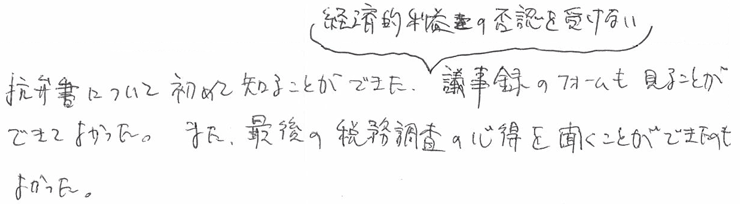 経済的利益の否認を受けない
抗弁書について初めて知ることができた。議事録のフォームも見ることが
できてよかった。また、最後の税務調査の心得を聞くことができたのも
よかった。